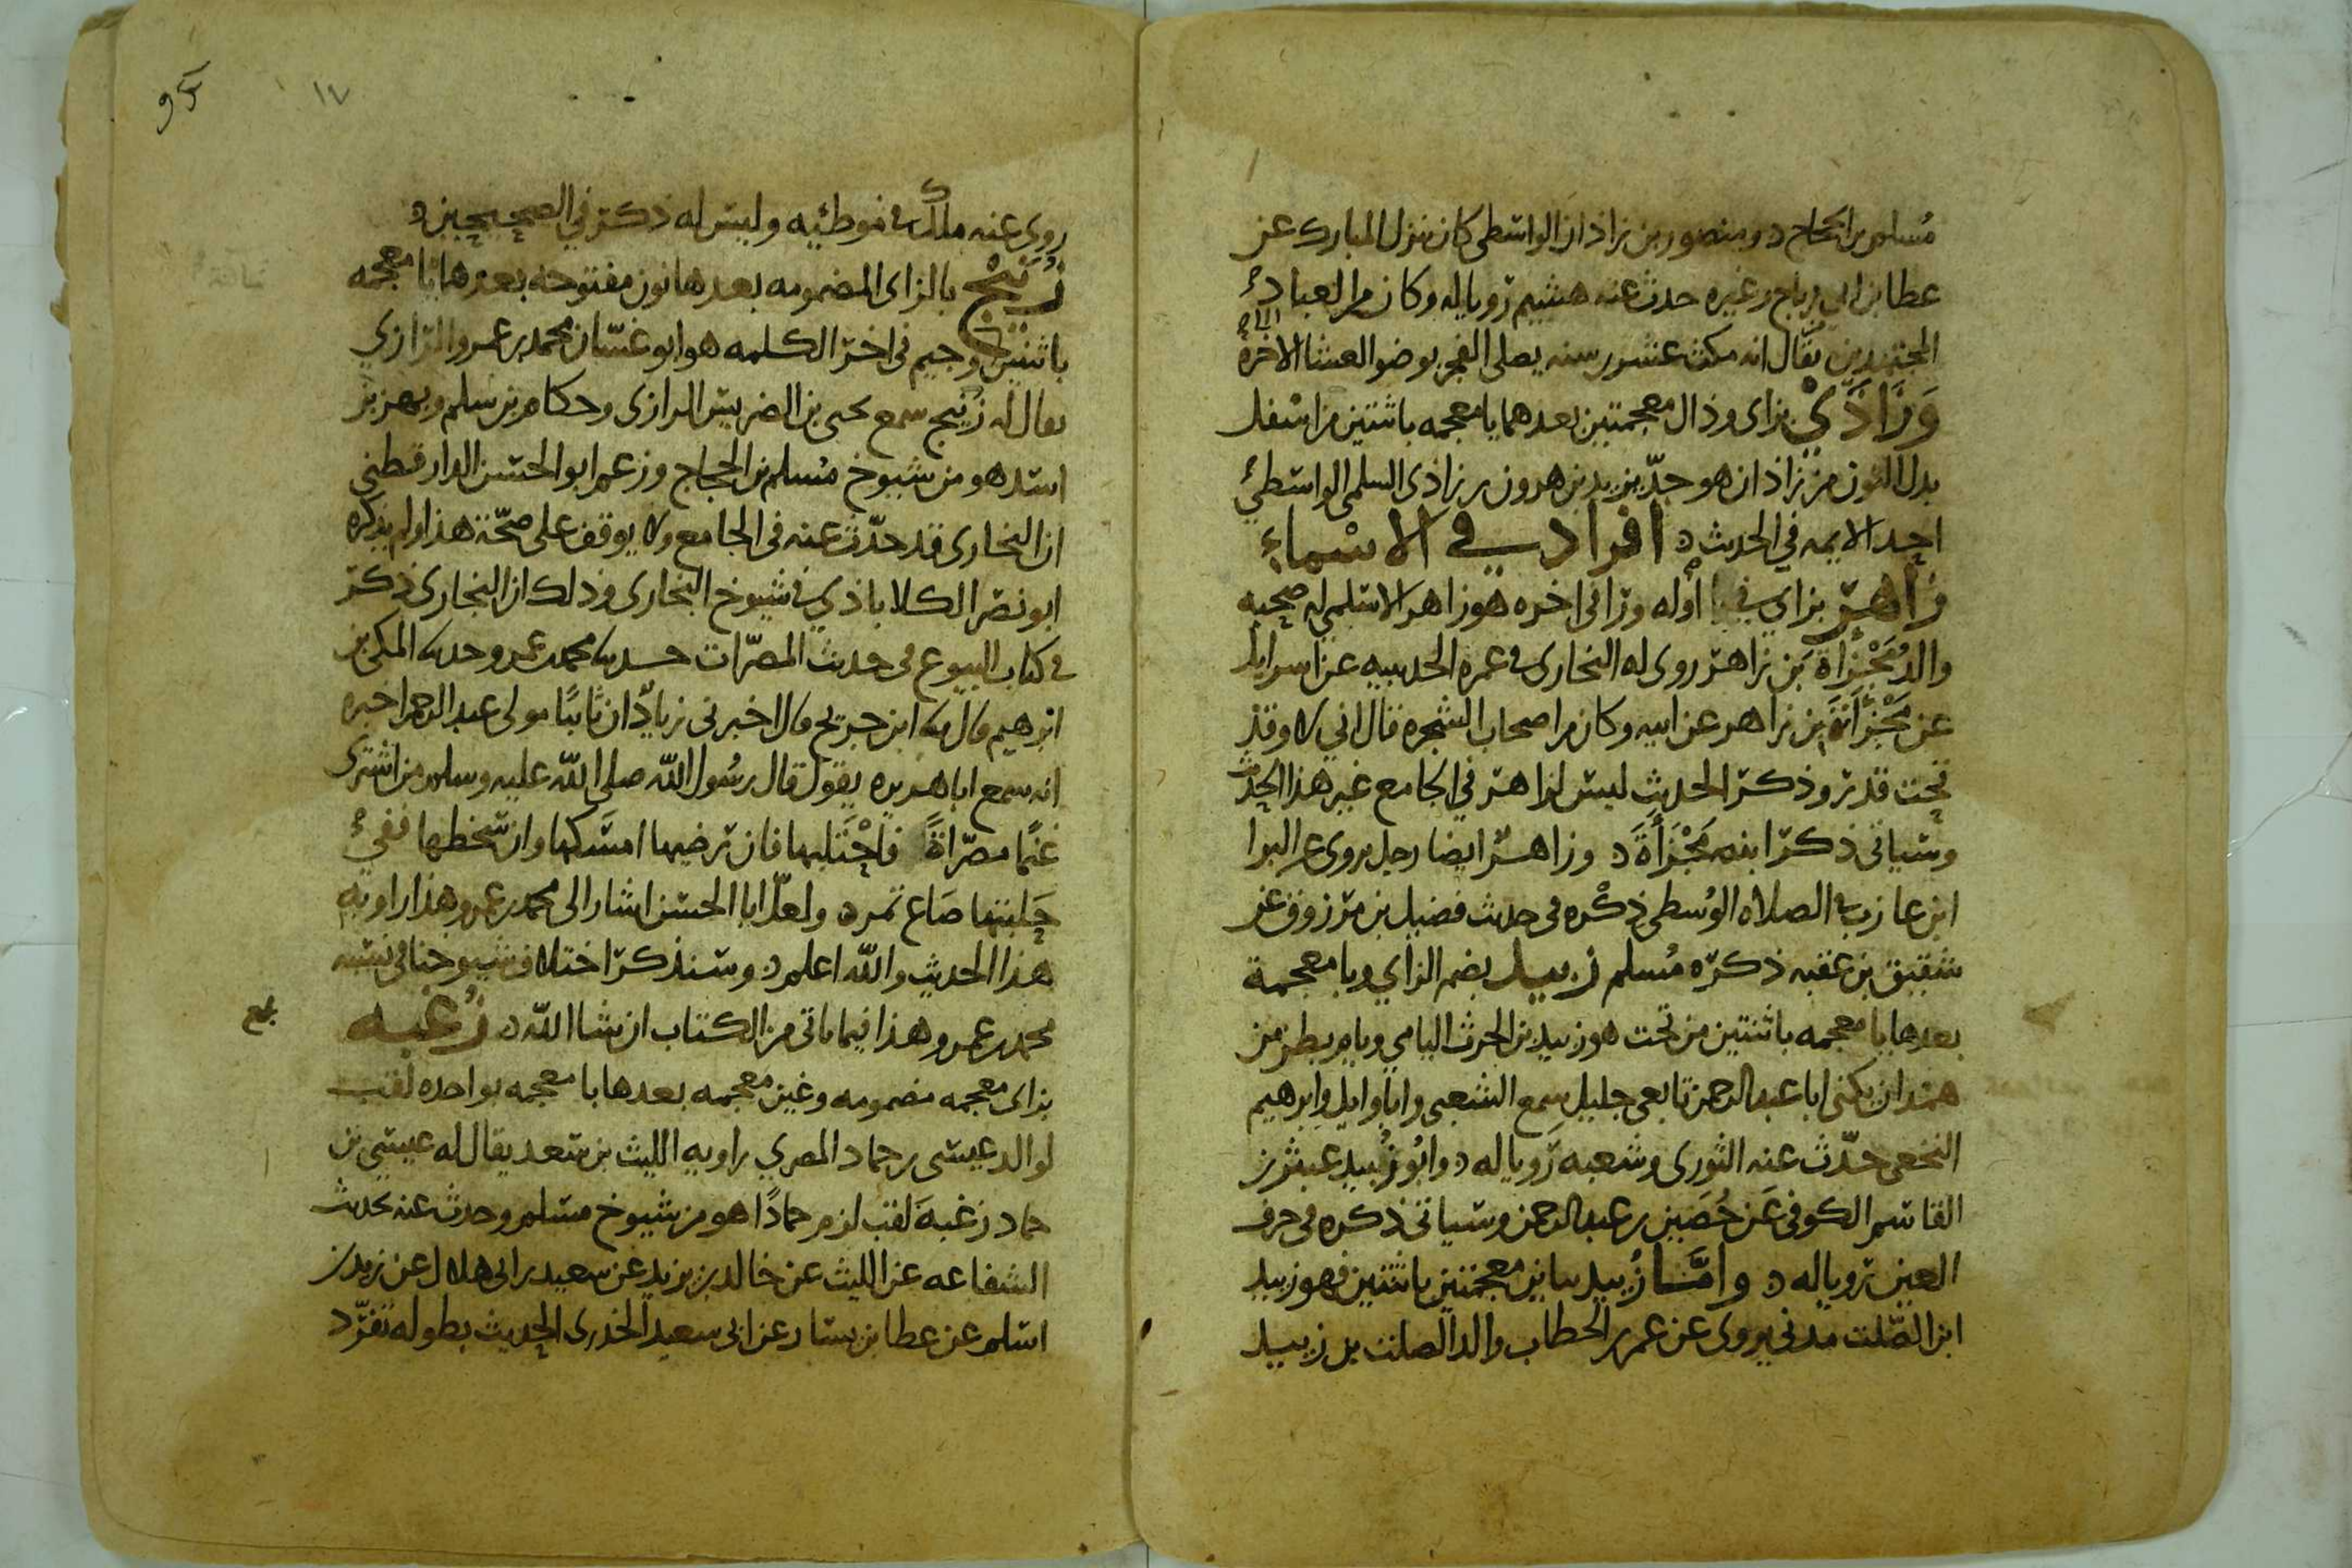 مُسلم بن الحجاج د ومنصور بن زاذان الواسطى كان ينزل المبارك عن
عطا بن ابي رباح وغيره حدث عنه هشيم رويا له وكان من العباد
المجتهدين يقال انه مكث عشرين سنه يصلى الفجر بوضو العشا الاخرة
وَزَاذَيْ بزاى وذال معجمتين بعدهما يا معجمه باثنتين من اسفل
بدل النون من زاذان هو جدّ يزيد بن هرون بن زاذى السلمى الواسطيُ
احد الايمه في الحديث د افراد في الاسْماء
زاهر بزاي في اوله ورا فى اخره هو زاهر الاسلمي له صحبه
والد مَجْزأة بن زاهر روى له البخارى في عمره الحديبيه عن اسرايل
عن مَجْزَأة بن زاهر عن ابيه وكان من اصحاب الشجره قال اني لاوقد
تحت قدر وذكر الحديث ليس لزاهر في الجامع غير هذا الحديث
وسياتي ذكر ابنه مَجْزَأَةَ د وزاهرٌ ايضا رجل يروى عن البرا
ابن عازب في الصلاه الوُسطى ذكْره في حديث فضيل بن مرزوق عن
شقيق بن عقبه ذكره مُسلم زبيد بضم الزاي وبا معجمة
بعدها يا معجمه باثنتين من تحت هو زبيد بن الحرث اليامي ويام بطن من
همدان يكنى ابا عبد الرحمن تابعى جليل سمع الشعبى وابا وايل وابرهيم
النخعى حدّث عنه الثورى وشعبه رويا له د وابُو زُبيد عبثر بن
القاسم الكوفى عن حُصَين بن عبد الرحمن وسياتى ذكره فى حرف
العين رويا له د وامَّا زُييد بيايين معجمتين باثنتين فهو زييد
ابن الصّلت مدني يروى عن عمر بن الخطاب والد الصلت بن زييد
٩٥
١٧
روى عنه ملك في موطئيه وليس له ذكر في الصحيحين د
زُنَيْج بالزاى المضمومه بعدها نون مفتوحه بعدها يا معجمه
باثنتين وجيم فى اخر الكلمه هو ابو غسّان محمد بن عمرو الرازي
يقال له زنيج سمع يحيى بن الضريس الرازى وحكام بن سلم وبهز بن
اسد هو من شيوخ مُسلم بن الحجاج وزعم ابو الحسن الدارقطنى
ان البخارى قد حدّث عنه فى الجامع ولا يوقف على صحّة هذا ولم يذكره
ابو نصر الكلاباذي في شيوخ البخارى وذلك ان البخارى ذكر
فى كتاب البيوع فى حديث المصرّات حدثنا محمد بن عمرو حدثنا المكى بن
ابرهيم قال انا ابن جريج قال اخبرنى زيادٌ ان ثابتًا مولى عبد الرحمن اخبره
انه سمع ابا هريره يقول قال رسُول الله صلى الله عليه وسلم من اشترى
غنمًا مصرّاةً فاحْتَلبها فان رضيها امسَكها وان سخطها ففيُ
حَلبتها صَاع تمر د ولعلّ ابا الحسن اشار الى محمد بن عمرو هذا راويه
هذا الحديث والله اعلم د وسنذكر اختلاف شيوخنا فى نسبه
محمد بن عمرو هذا فيما ياتى من الكتاب ان شا الله د زُغبه
بزاى معجمه مضمومه وغين معجمه بعدها با معجمه بواحده لقب
لوالد عيسى بن حماد المصري راويه الليث بن سعد يقال له عيسى بن
حماد زغبةَ لقب لزم حمادًا هو من شيوخ مسلم وحدث عنه بحديث
الشفاعه عن الليث عن خالد بن يزيد عن سعيد بن ابى هلال عن زيد بن
اسلم عن عطا بن يسار عن ابى سعيد الخدرى الحديث بطوله تفرّد